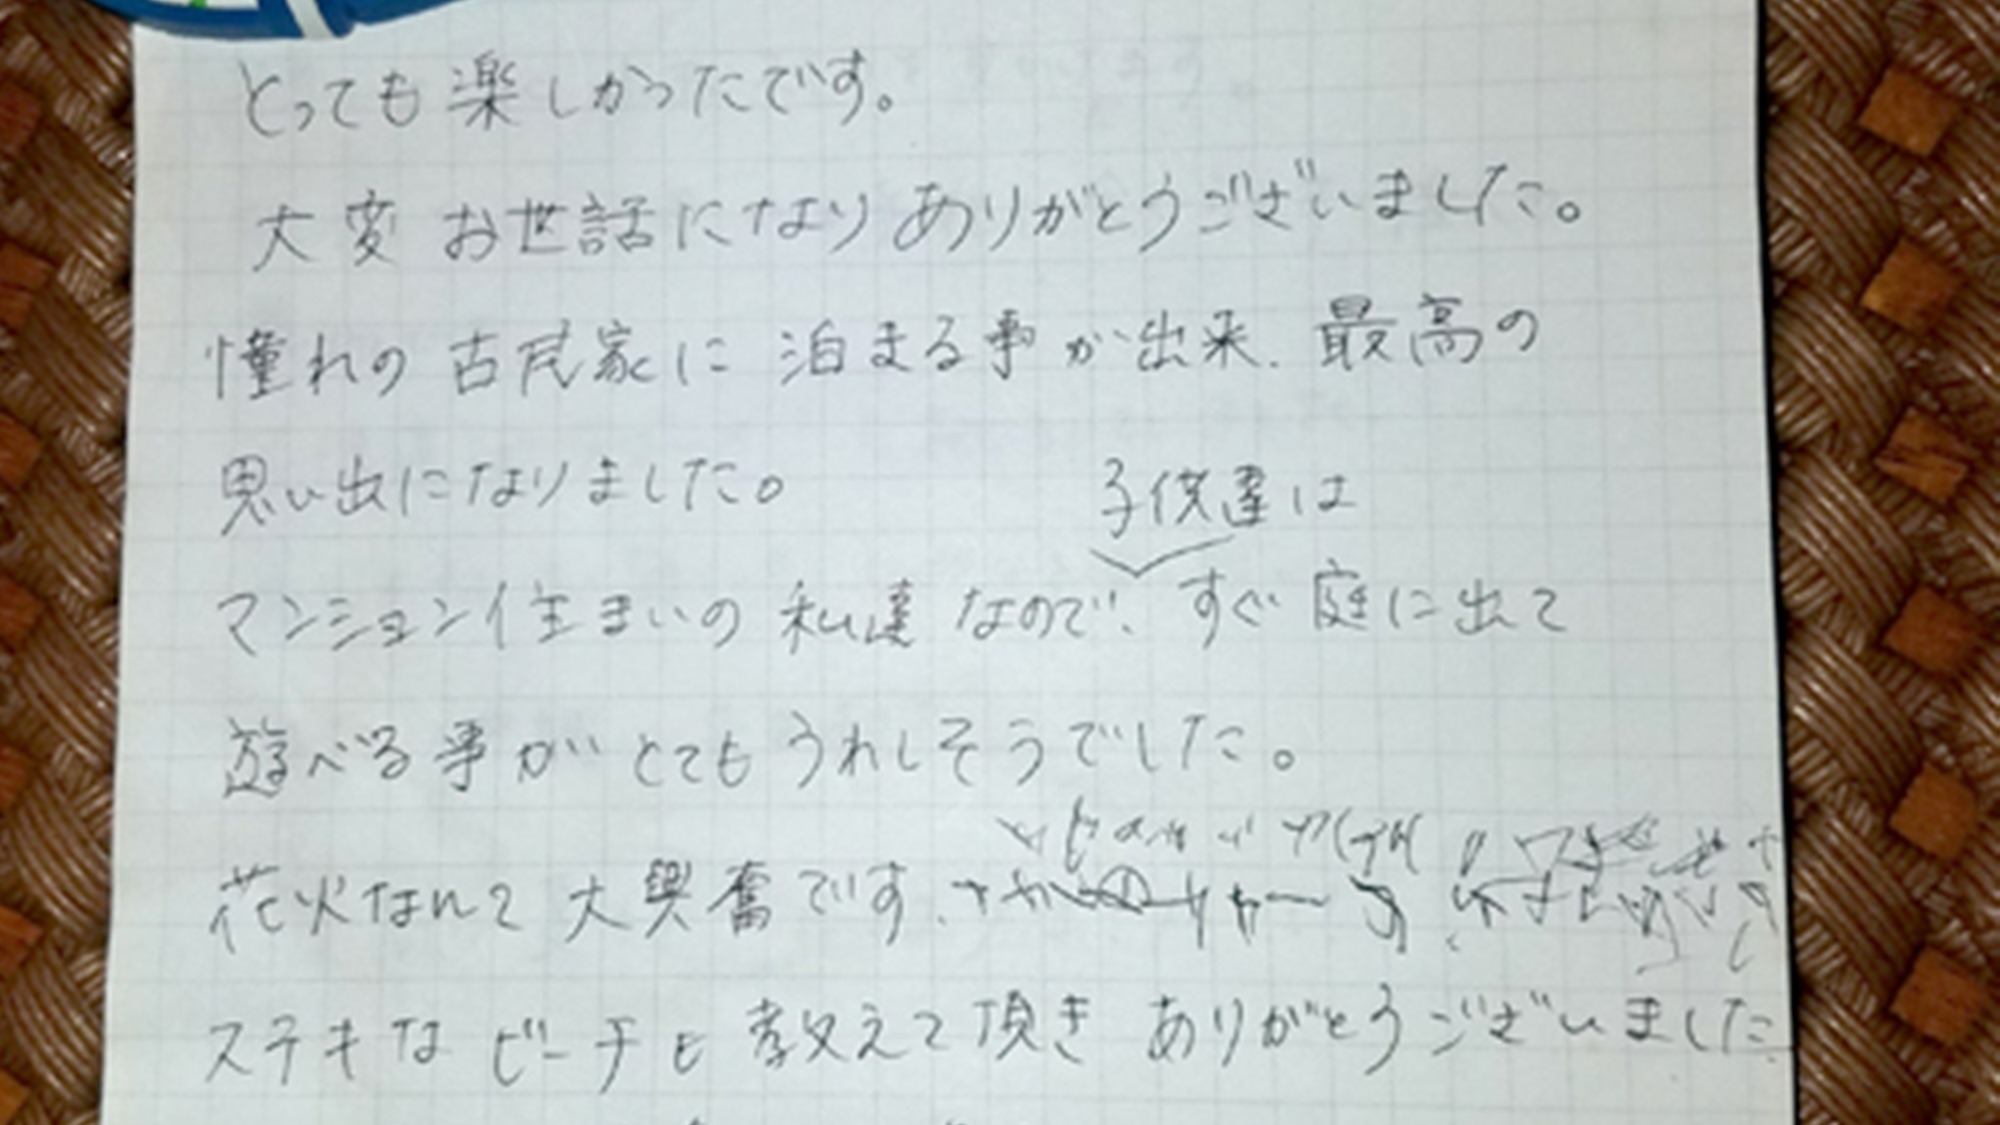 とっても楽しかったです。
大変 お世話になり ありがとうございました。
憧れの 古民家に 泊まる事が出来、最高の
思い出になりました。
子供達は
マンション住まいの 私達 なので、すぐ 庭に出て
遊べる事が とても うれしそうでした。
花火なんて 大興奮です、
ステキな ビーチも 教えて頂き ありがとうございました